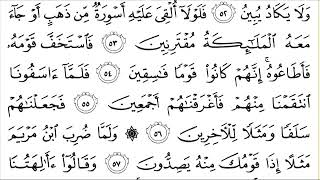 وَلَا يَكَادُ يُبِينُ ٥٢ فَلَوْلَآ أُلْقِىَ عَلَيْهِ أَسْوِرَةٌ مِّن ذَهَبٍ أَوْ جَآءَ
مَعَهُ ٱلْمَلَـٰٓئِكَةُ مُقْتَرِنِينَ ٥٣ فَٱسْتَخَفَّ قَوْمَهُۥ
فَأَطَاعُوهُ ۚ إِنَّهُمْ كَانُوا۟ قَوْمًا فَـٰسِقِينَ ٥٤ فَلَمَّآ ءَاسَفُونَا
ٱنتَقَمْنَا مِنْهُمْ فَأَغْرَقْنَـٰهُمْ أَجْمَعِينَ ٥٥ فَجَعَلْنَـٰهُمْ
سَلَفًا وَمَثَلًا لِّلْـَٔاخِرِينَ ٥٦ ۞ وَلَمَّا ضُرِبَ ٱبْنُ مَرْيَمَ
مَثَلًا إِذَا قَوْمُكَ مِنْهُ يَصِدُّونَ ٥٧ وَقَالُوٓا۟ ءَأَـٰلِهَتُنَا